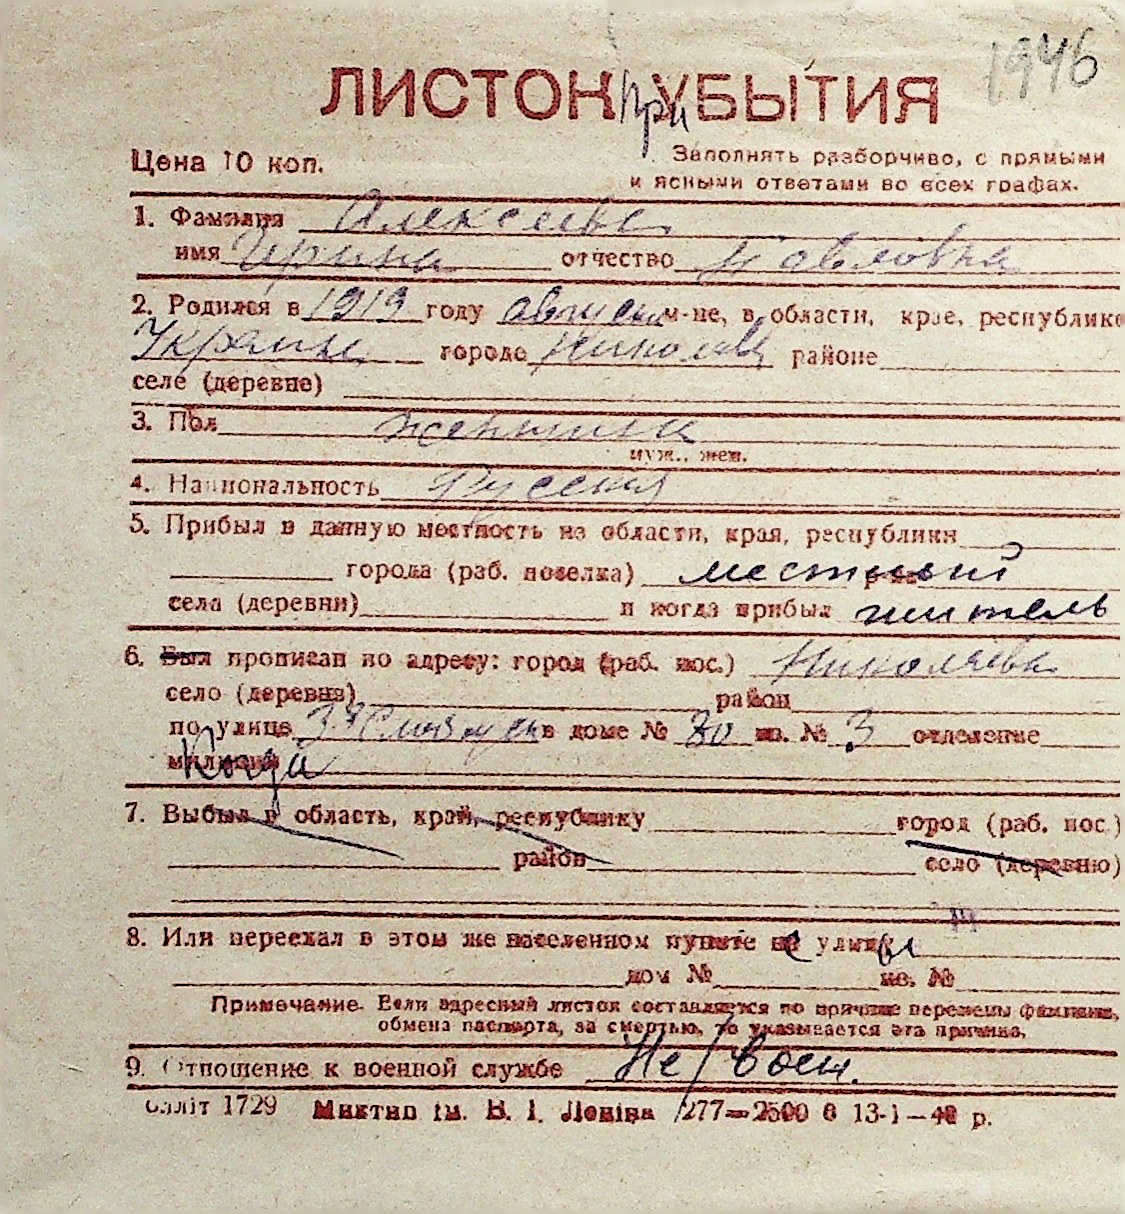 1946
ЛИСТОК При УБЫТИЯ
Цена 10 коп.
Заполнять разборчиво, с прямыми
и ясными ответами во всех графах.
1. Фамилия Алексеева
имя Ирина отчество Павловна
2. Родился в 1919 году август м-це, в области, крае, республике
Украина городе Николаев районе
селе (деревне)
3. Пол женщина
муж., жен.
4. Национальность Русская
5. Прибыл в данную местность из области, края, республики
города (раб. поселка) местный р-на
села (деревни) и когда прибыл житель
6. Был прописан по адресу: город (раб. пос.) Николаев
село (деревня) район
по улице 3 в доме № 30 кв. № 3 отделение
милиции Когда
7. Выбыл в область, край, республику город (раб. пос.)
район село (деревню)
8. Или переехал в этом же населенном пункте с улицы
дом № кв. №
Примечание. Если адресный листок составляется по причине перемены фамилии,
обмена паспорта, за смертью, то указывается эта причина.
9. Отношение к военной службе Не/воен.
Оллiт 1729 Миктип iм. В. I. Ленiна 277—2500 6 13-1—